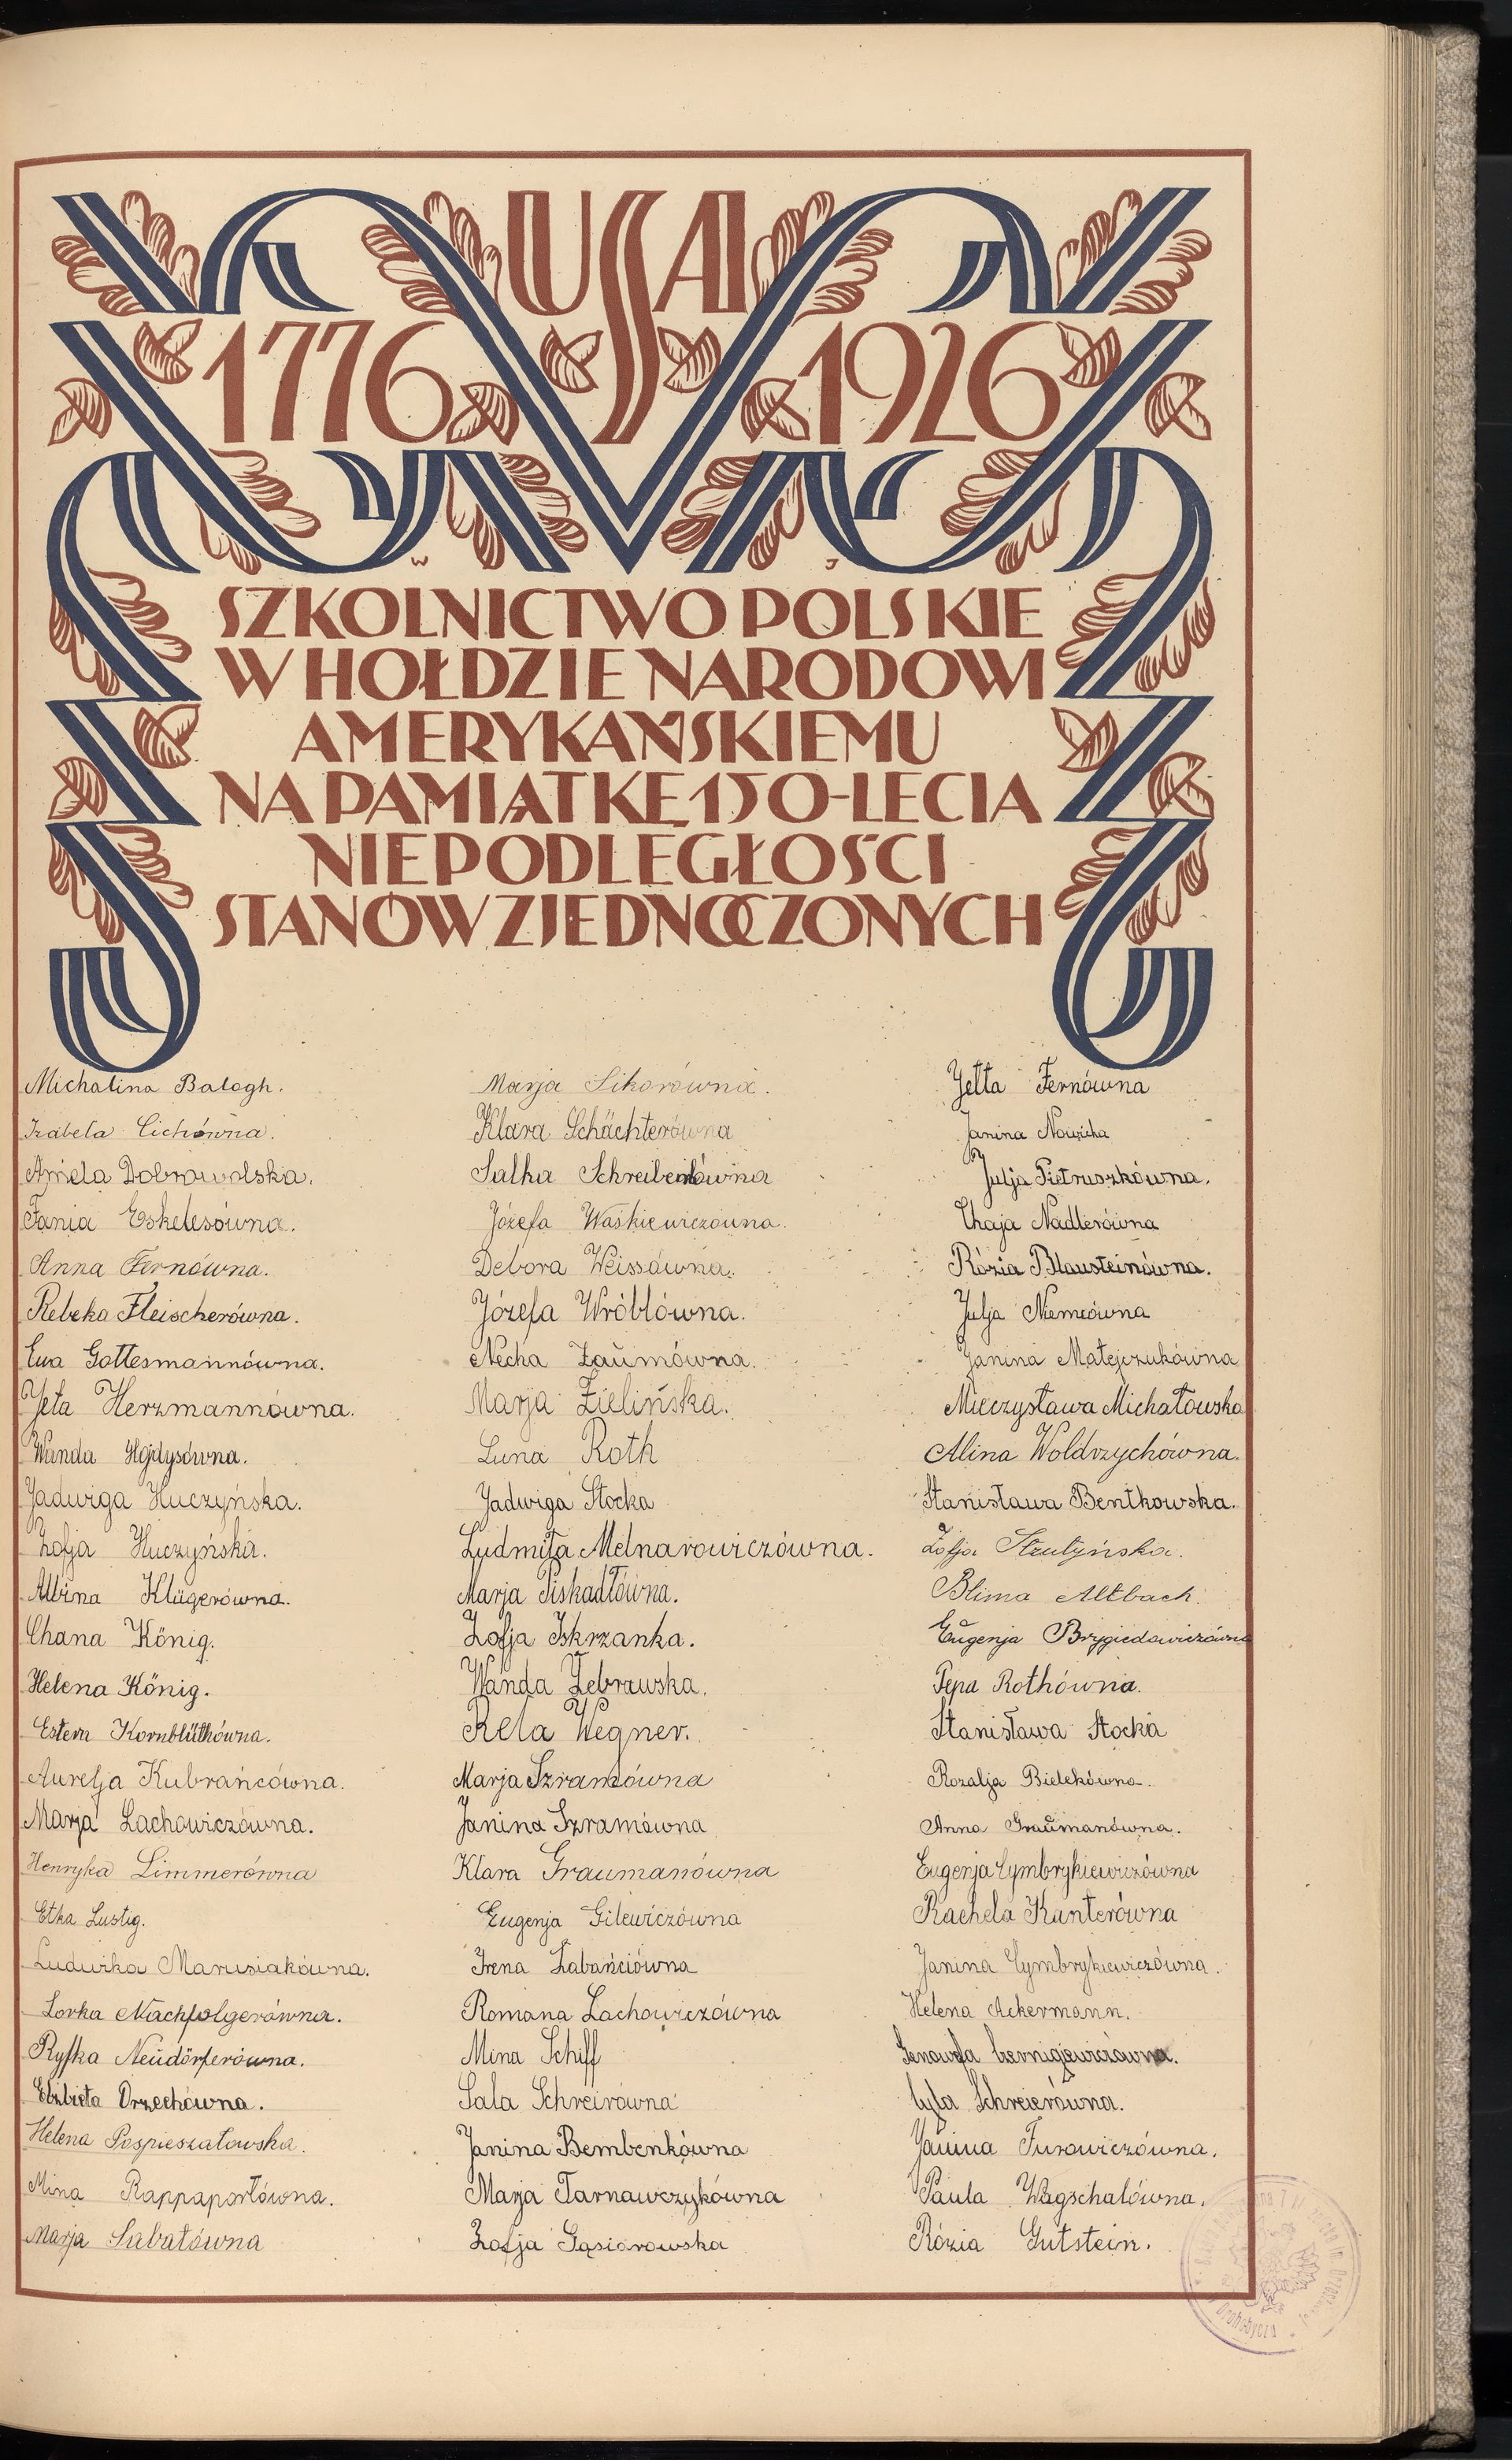 USA
1776 1926
W J
SZKOLNICTWO POLSKIE
W HOŁDZIE NARODOWI
AMERYKAŃSKIEMU
NA PAMIĄTKĘ 150-LECIA
NIEPODLEGŁOŚCI
STANÓW ZJEDNOCZONYCH
Michalina Balogh.
Izabela Cichówna.
Aniela Dobrowolska.
Fania Eskelesówna.
Anna Fernówna.
Rebeka Fleischerówna.
Ewa Gottesmannówna.
Jeta Herzmannówna.
Wanda Hajdysówna.
Jadwiga Huczyńska.
Zofja Huczyńska.
Albina Klügerówna.
Chana König.
Helena König.
Estera Kornblüthówna.
Aurelja Kubrańcówna.
Marja Lachowiczówna.
Henryka Limmerówna
Etka Lustig.
Ludwika Marusiakówna.
Lorka Nachfolgerówna.
Ryfka Neudörferówna.
Elżbieta Orzechówna.
Helena Pospieszałowska.
Mina Rappaportówna.
Marja Sabatówna
Marja Sikorówna.
Klara Schächterówna
Salka Schreiberówna
Józefa Waśkiewiczówna.
Debora Weissówna.
Józefa Wróblówna.
Necha Zaumówna.
Marja Zielińska.
Luna Roth
Jadwiga Stocka
Ludmiła Melnarowiczówna.
Marja Piskadłówna.
Zofja Iskrzanka.
Wanda Żebrawska.
Rela Wegner.
Marja Szramówna
Janina Szramówna
Klara Graumanówna
Eugenja Gilewiczówna
Irena Łabańciówna
Romana Lachowiczówna
Mina Schiff
Sala Schreirówna
Janina Bembenkówna
Marja Tarnawczykówna
Zofja Gąsiorowska
Jetta Fernówna
Janina Nowicka
Julja Pietruszkówna.
Chaja Nadlerówna
Rózia Blausteinówna.
Julja Niemcówna
Janina Matejczukówna
Mieczysława Michałowska
Alina Woldrzychówna.
Stanisława Bentkowska.
Zofja Strutyńska.
Blima Altbach.
Eugenja Brygiedowiczówna
Pepa Rothówna.
Stanisława Stocka
Rozalja Bielekówna.
Anna Graumanówna.
Eugenja Cymbrykiewiczówna
Rachela Kanterówna
Janina Cymbrykiewiczówna.
Helena Ackermann.
Genowefa Czernigiewiczówna.
Cyla Schreierówna.
Janina Turowiczówna.
Paula Wagschalówna.
Rózia Gutstein.